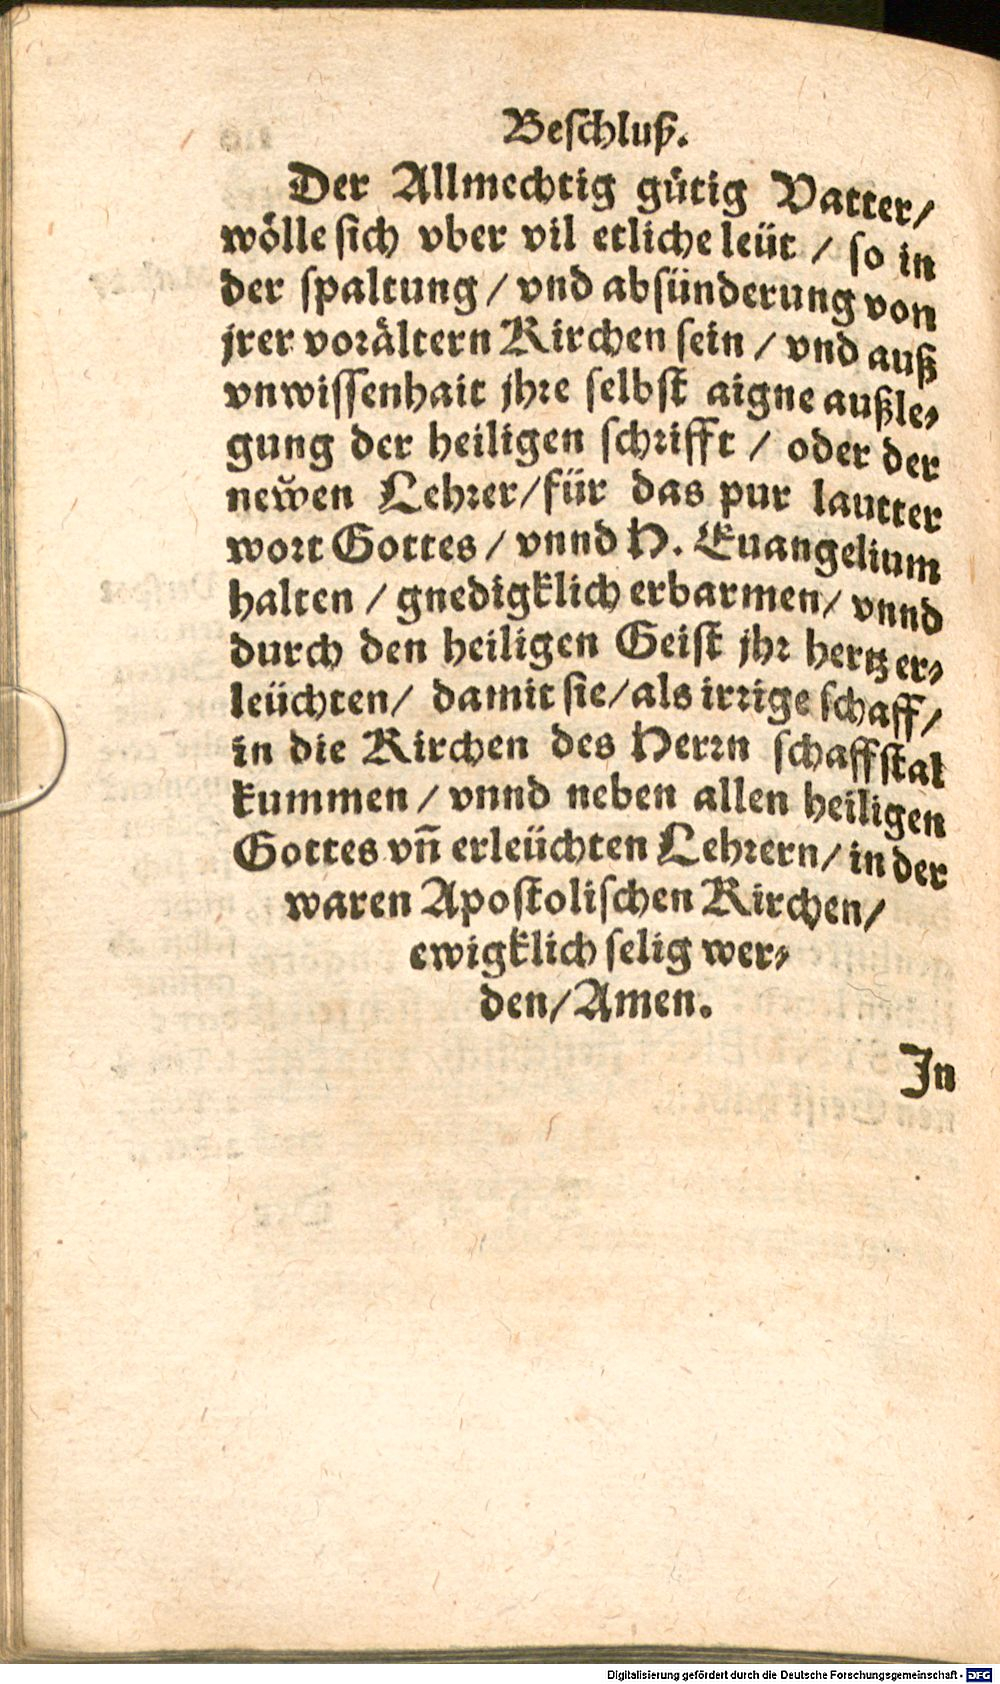 Beschluß.
Der Allmechtig gütig Vatter/
wölle sich vber vil etliche leüt / so in
der spaltung / vnd absünderung von
jrer vorältern Kirchen sein / vnd auß
vnwissenhait jhre selbst aigne außle⸗
gung der heiligen schrifft / oder der
newen Lehrer/ für das pur lautter
wort Gottes / vnnd H. Euangelium
halten / gnedigklich erbarmen/ vnnd
durch den heiligen Geist jhr hertz er⸗
leüchten/ damit sie/ als irrige schaff/
in die Kirchen des Herrn schaffstal
kummen / vnnd neben allen heiligen
Gottes vñ erleüchten Lehrern/ in der
waren Apostolischen Kirchen/
ewigklich selig wer⸗
den/ Amen.
In
Digitalisierung gefördert durch die Deutsche Forschungsgemeinschaft - DFG